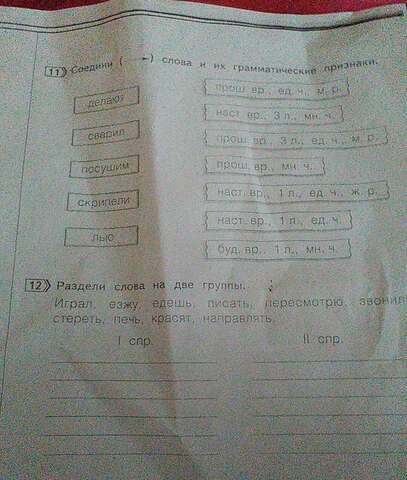 11 Соедини ( → ) слова и их грамматические признаки.
делают
сварил
посушим
скрипели
лью
прош. вр., ед. ч., м. р.
наст. вр., 3 л., мн. ч.
прош. вр., 3 л., ед. ч., м. р.
прош. вр., мн. ч.
наст. вр., 1 л., ед. ч., ж. р.
наст. вр., 1 л., ед. ч.
буд. вр., 1 л., мн. ч.
12 Раздели слова на две группы.
Играл, езжу, едешь, писать, пересмотрю, звонил
стереть, печь, красят, направлять.
I спр. II спр.